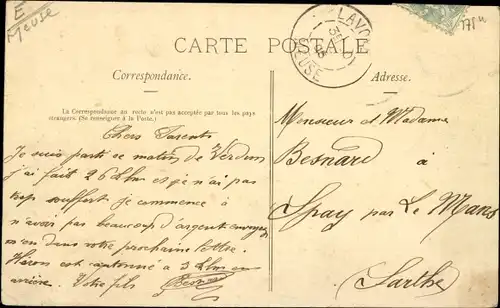 E
Meuse
175
LAVO
MEUSE
CARTE POSTALE
Correspondance.
Adresse.
La Correspondance au recto n'est pas acceptée par tous les pays
étrangers. (Se renseigner à la Poste.)
Chers Parents
Je suis parti se matin de Verdun
j'ai fait 26 Klm et je n'ai pas
trop souffert. Je commence à
n'avoir pas beaucoup d'argent envoyez
m'en dans votre prochaine lettre.
Héron est cantonné à 3 Klm en
arrière. Votre fils Besnard
Monsieur et Madame
Besnard à
Spay par Le Mans
Sarthe